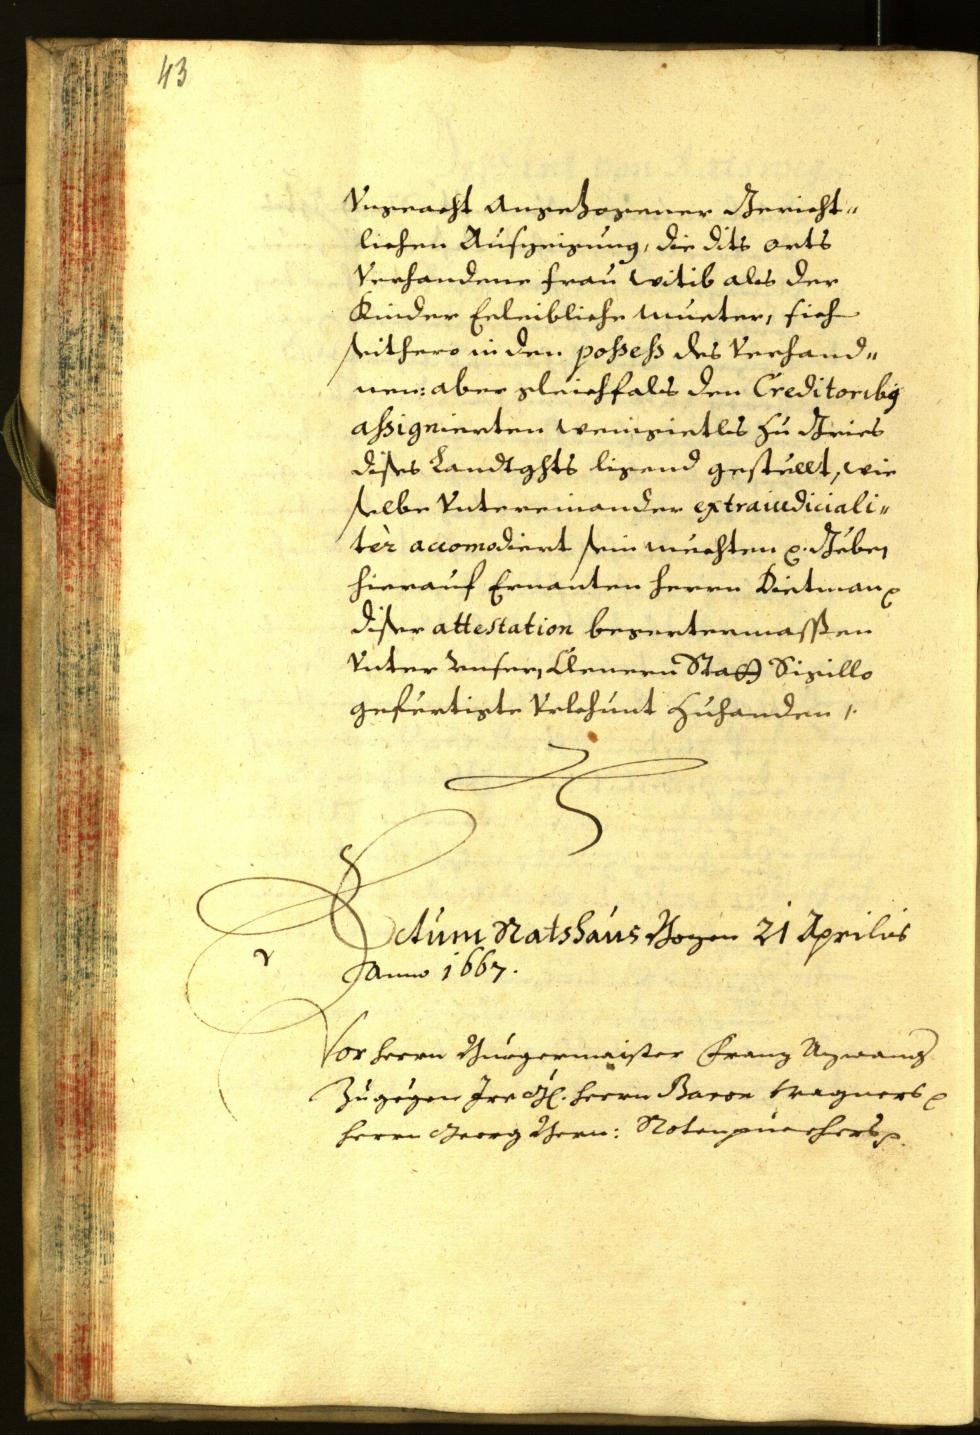 43
Vngeacht Angezogener Gericht¬
lichen Aufzeigung, die dits orts
Verhandene Frau witib als der
Kinder Eeleibliche Mueter, sich
seithero in den possess des Verhand¬
nen: aber gleichfals den Creditoribus
assignierten Weingietls zu Gries
dises Landtghts ligend gestellt, wie
selbe Vntereinander extraiudiciali¬
tèr accomodiert sein mechten p. Geben
hierauf Ernanten herrn Dietman p
diser attestation begertermassen
Vnter Vnserm Clenern Statt Sigillo
gefertigte Vrkhunt zuhanden /.
Actum Rathshaus Bozen 21 Aprilis
Anno 1667.
Vor herrn Burgermaister Franz
Zugegen Ire Gl. herrn Baron Wagners p
herrn Georg